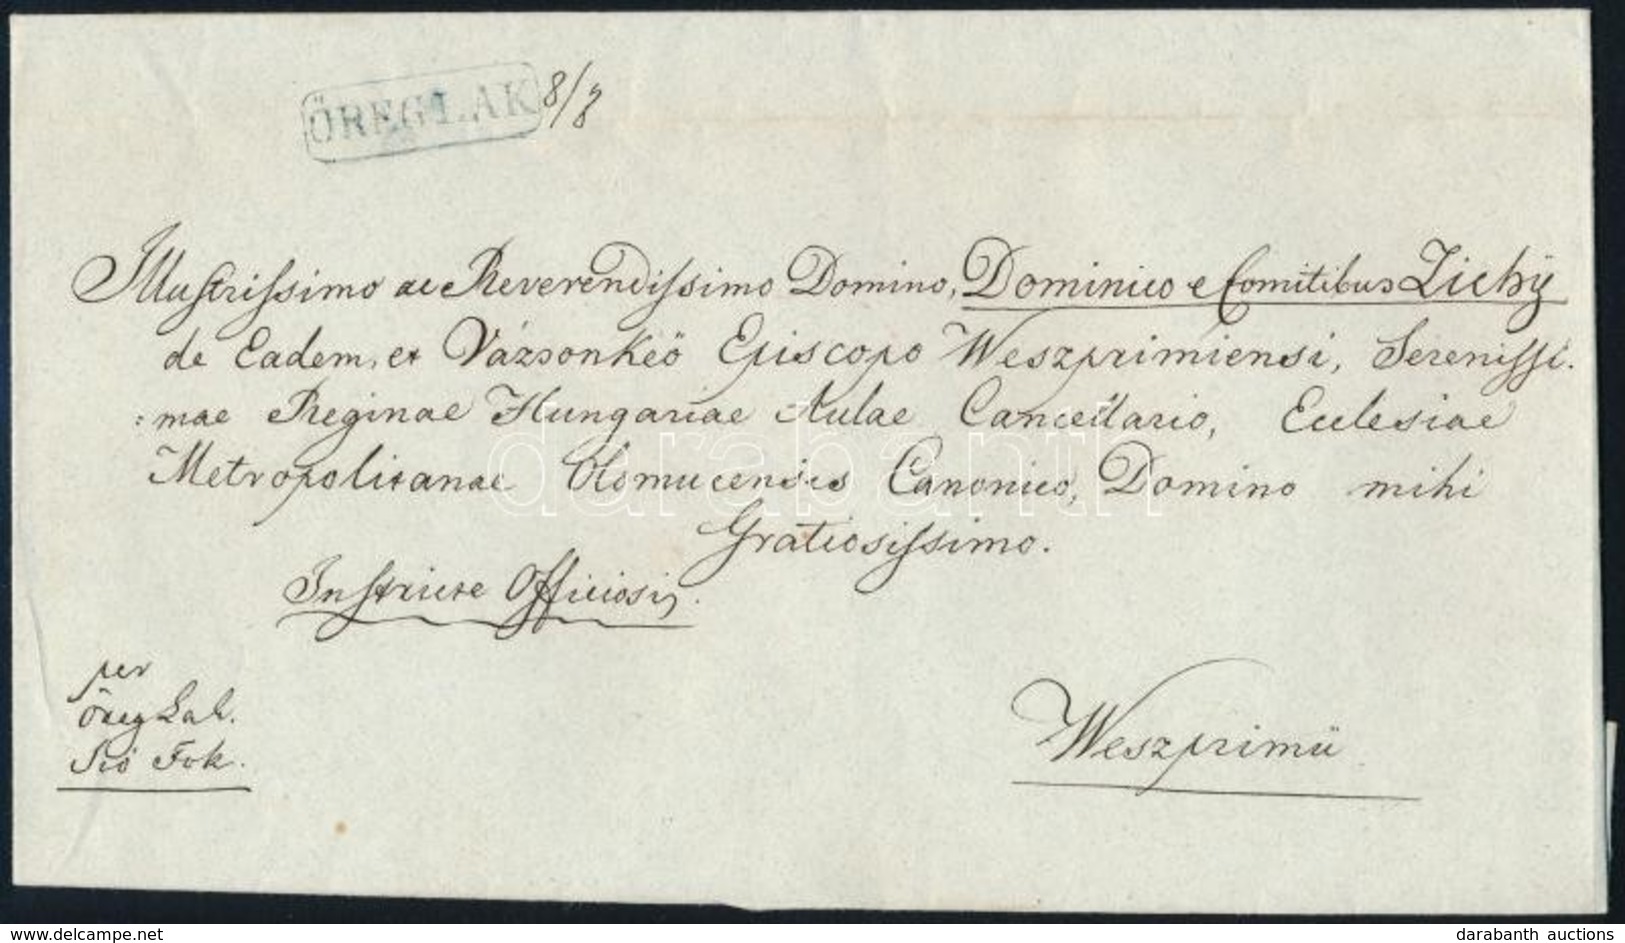 ÖREGLAK 8/8
Illustrissimo ac Reverendissimo Domino, Dominico e Comitibus Zichÿ
de Eadem, et Vázsonkeö Episcopo Weszprimiensi, Serenissi.
:mae Reginae Hungariae Aulae Cancellario, Ecclesiae
Metropolitanae Olomucensis Canonico, Domino mihi
Gratiosissimo.
Officiosis.
per
Öreg Lak.
Sió Fok.
Weszprimü
darabanth
www.delcampe.net
darabanth auctions